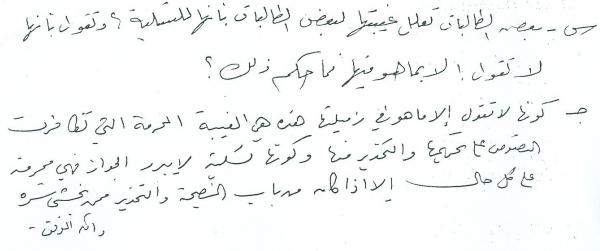 س - بعض الطالبات تعلل غيبتها لبعض الطالبات بأنها للتسلية ؟ وتقول بأنها
لا تقول إلا بما هو فيها فما حكم ذلك ؟
جـ - كونها لا تقول إلا ما هو في زميلتها هذه هي الغيبة المحرمة التي تظافرت
النصوص على تحريمها والتحذير منها وكونها تسلية لا يبرر الجواز فهي محرمة
على كل حال إلا إذا كان من باب النصيحة والتحذير ممن يخشى شره
والله الموفق -